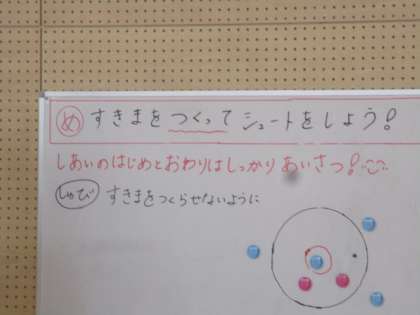 め すきまをつくってシュートをしよう!
しあいのはじめとおわりはしっかりあいさつ!
しゅび すきまをつくらせないように